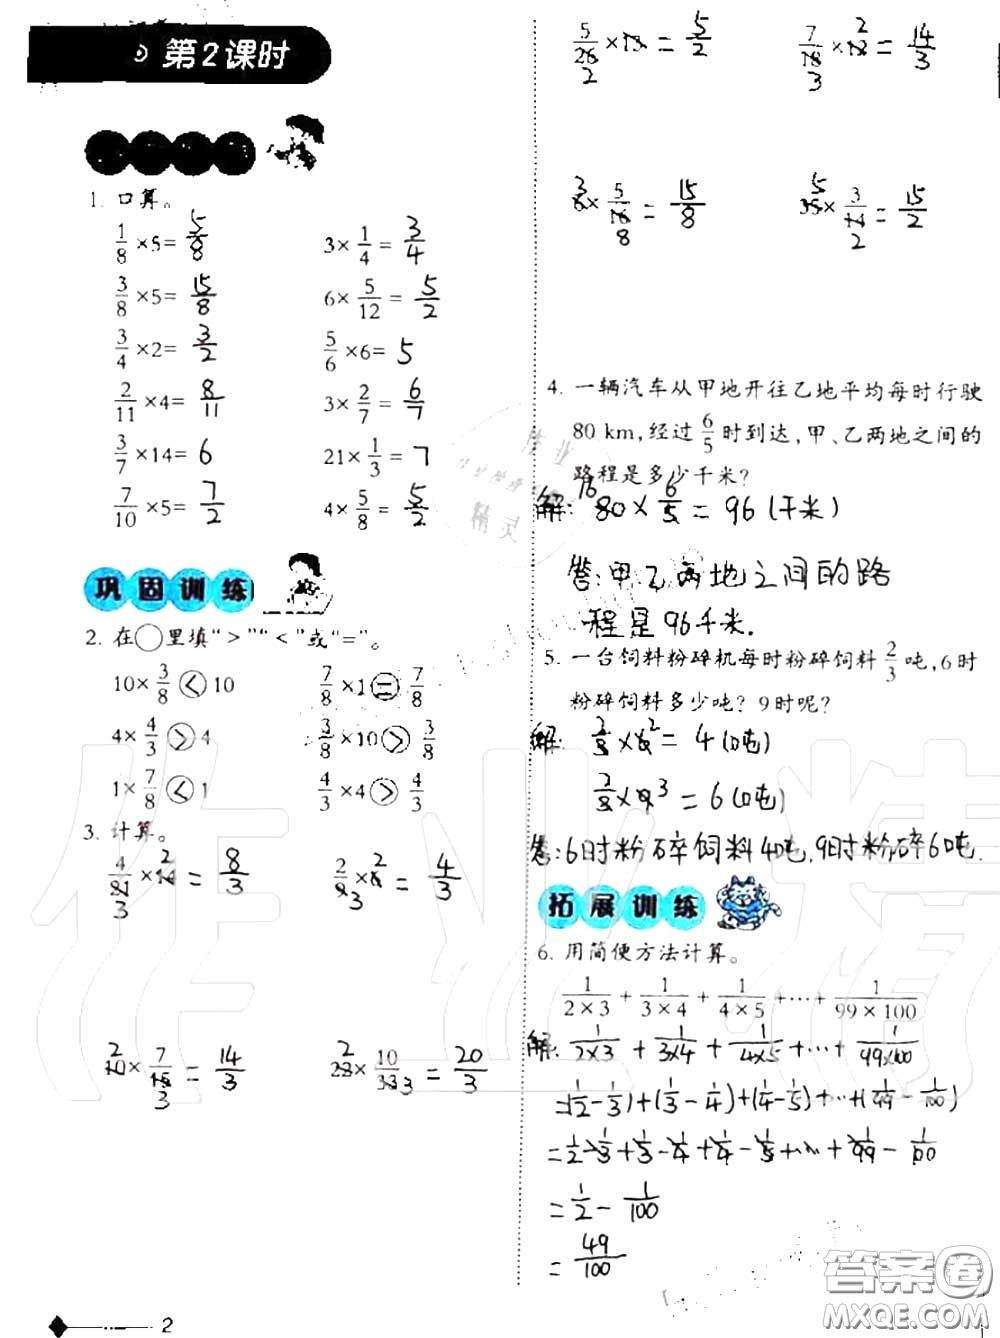 第2课时
1. 口算。
1/8 ×5= 5/8   3× 1/4 = 3/4
3/8 ×5= 15/8   6× 5/12 = 5/2
3/4 ×2= 3/2   5/6 ×6= 5
2/11 ×4= 8/11   3× 2/7 = 6/7
3/7 ×14= 6   21× 1/3 = 7
7/10 ×5= 7/2   4× 5/8 = 5/2
巩固训练
2. 在○里填“>”“<”或“=”。
10× 3/8 < 10   7/8 ×1 = 7/8
4× 4/3 > 4   3/8 ×10 > 3/8
1× 7/8 < 1   4/3 ×4 > 4/3
3. 计算。
4/21 3 ×14 2 = 8/3   2/3 × 2 = 4/3
2 10× 7/15 3 = 14/3   2 × 10/33 3 = 20/3
5/26 2 ×13 = 5/2   7/18 3 ×12 2 = 14/3
3 6× 5/16 8 = 15/8   5 35× 3/14 2 = 15/2
4. 一辆汽车从甲地开往乙地平均每时行驶
80 km,经过 6/5 时到达,甲、乙两地之间的
路程是多少千米?
解: 16 80 × 6/5 = 96 (千米)
答:甲乙两地之间的路
程是96千米.
5. 一台饲料粉碎机每时粉碎饲料 2/3 吨,6时
粉碎饲料多少吨? 9时呢?
解: 2/3 ×6 2 = 4 (吨)
2/3 ×9 3 = 6 (吨)
答:6时粉碎饲料4吨,9时粉碎6吨.
拓展训练
6. 用简便方法计算。
1/(2×3) + 1/(3×4) + 1/(4×5) +…+ 1/(99×100)
解: 1/(2×3) + 1/(3×4) + 1/(4×5) +…+ 1/(99×100)
=(1/2 - 1/3)+(1/3 - 1/4)+(1/4 - 1/5)+…+(1/99 - 1/100)
= 1/2 - 1/3 + 1/3 - 1/4 + 1/4 - 1/5 +…+ 1/99 - 1/100
= 1/2 - 1/100
= 49/100
2
作业精
精灵
答案圈
MXQE.COM